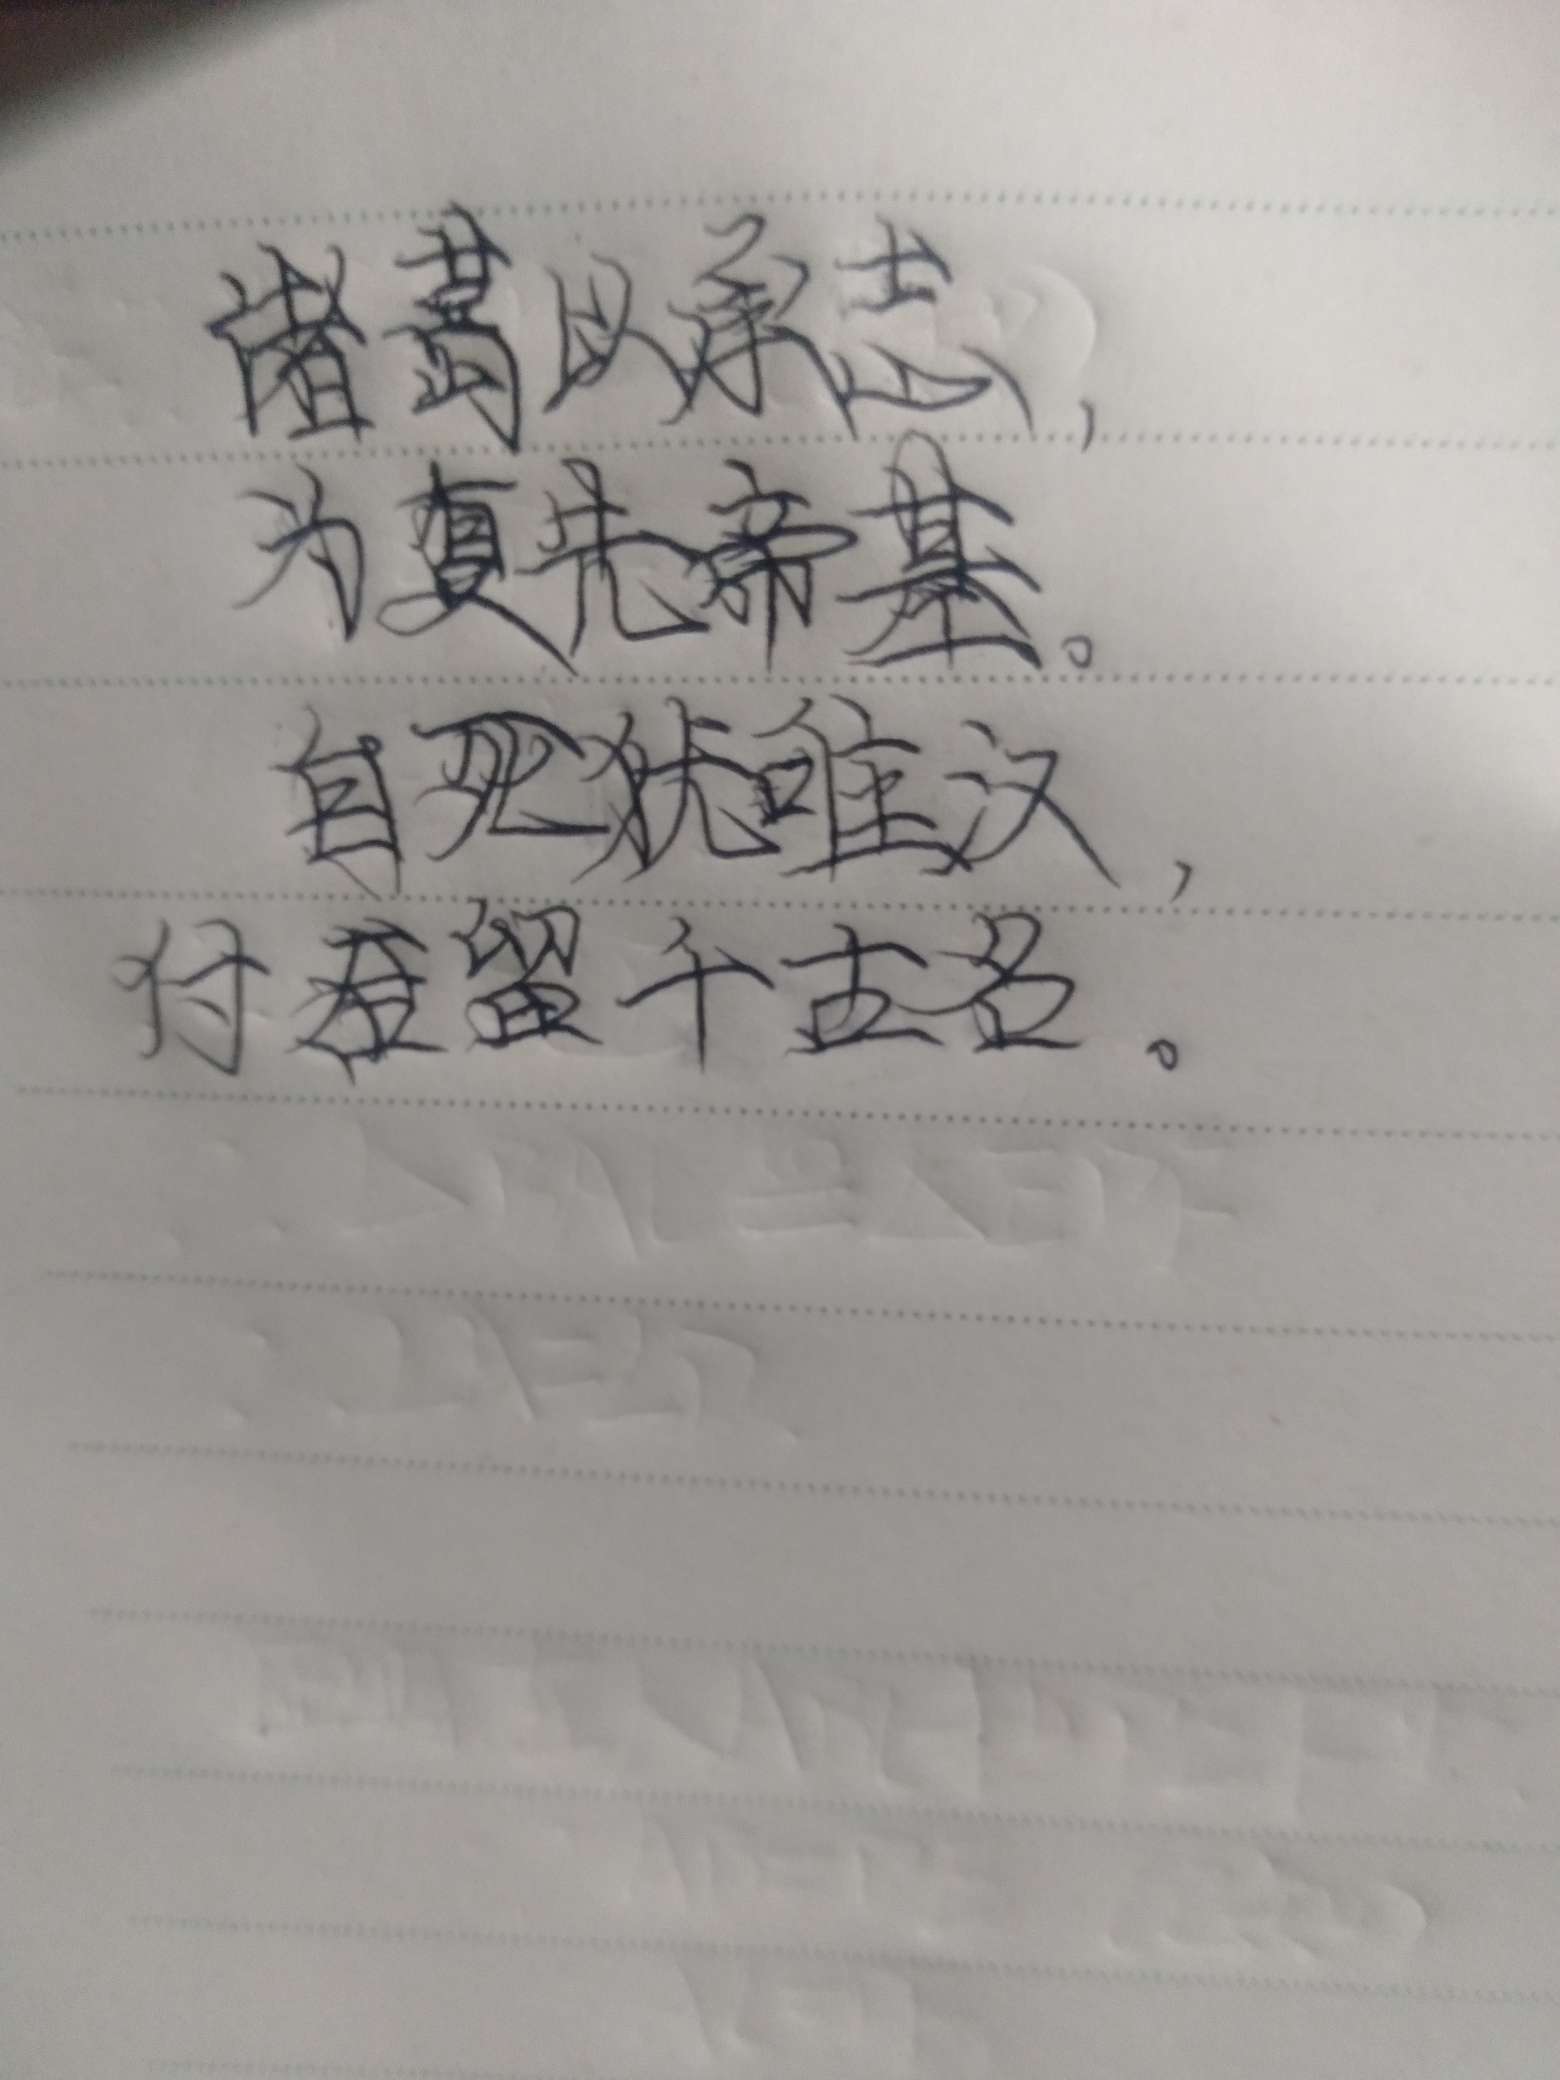 諸葛以承志，
为复先帝基。
自死犹唯汉，
付君留千古名。